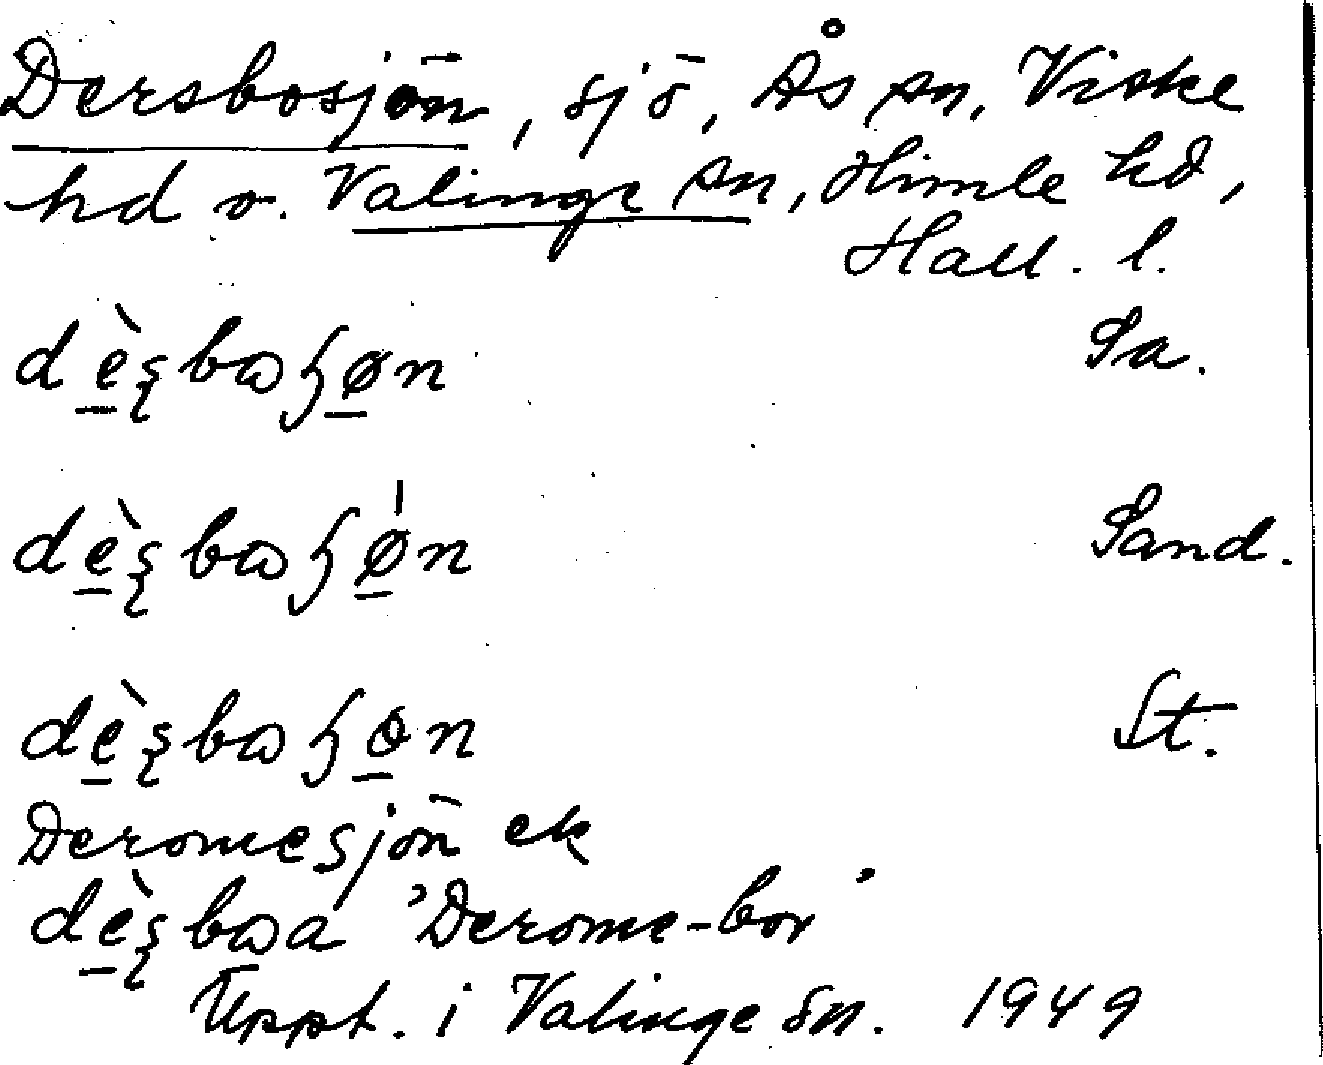 Dersbosjön, sjö, Ås sn, Viske
hd o. Valinge sn, Himle hd,
Hall. l.
Sa.
Sand.
St.
Deromesjön ek
'Derome-bor'
Uppt. i Valinge sn. 1949